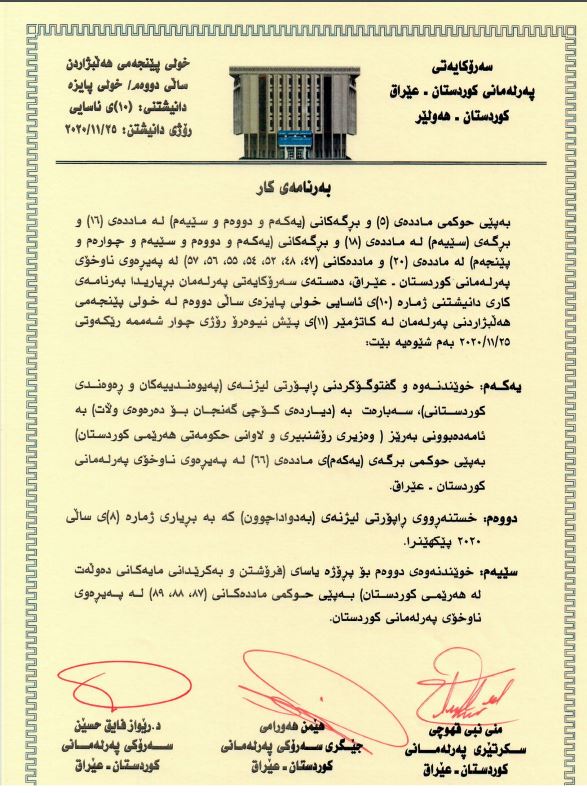 سەرۆکایەتی
پەرلەمانی کوردستان - عێراق
کوردستان - هەولێر
خولی پێنجەمی هەڵبژاردن
ساڵی دووەم/ خولی پایزە
دانیشتنی: (١٠)ی ئاسایی
رۆژی دانیشتن: ٢٠٢٠/١١/٢٥
بەرنامەی کار
بەپێی حوکمی ماددەی (٥) و بڕگەکانی (یەکەم و دووەم و سێیەم) لە ماددەی (١٦) و
بڕگەی (سێیەم) لە ماددەی (١٨) و بڕگەکانی (یەکەم و دووەم و سێیەم و چوارەم و
پێنجەم) لە ماددەی (٢٠) و ماددەکانی (٤٧، ٤٨، ٥٢، ٥٤، ٥٥، ٥٦، ٥٧) لە پەیڕەوی ناوخۆی
پەرلەمانی کوردستان - عێراق، دەستەی سەرۆکایەتی پەرلەمان بڕیاریدا بەرنامەی
کاری دانیشتنی ژمارە (١٠)ی ئاسایی خولی پایزەی ساڵی دووەم لە خولی پێنجەمی
هەڵبژاردنی پەرلەمان لە کاتژمێر (١١)ی پێش نیوەڕۆ رۆژی چوار شەممە رێکەوتی
٢٠٢٠/١١/٢٥ بەم شێوەیە بێت:
یەکەم: خوێندنەوە و گفتوگۆکردنی راپۆرتی لیژنەی (پەیوەندییەکان و رەوەندی
کوردستانی)، سەبارەت بە (دیاردەی کۆچی گەنجان بۆ دەرەوەی وڵات) بە
ئامادەبوونی بەرێز ( وەزیری رۆشنبیری و لاوانی حکومەتی هەرێمی کوردستان)
بەپێی حوکمی بڕگەی (یەکەم)ی ماددەی (٦٦) لە پەیڕەوی ناوخۆی پەرلەمانی
کوردستان - عێراق.
دووەم: خستنەڕووی راپۆرتی لیژنەی (بەدواداچوون) کە بە بڕیاری ژمارە (٨)ی ساڵی
٢٠٢٠ پێکهێنرا.
سێیەم: خوێندنەوەی دووەم بۆ پرۆژە یاسای (فرۆشتن و بەکرێدانی مایەکانی دەوڵەت
لە هەرێمی کوردستان) بەپێی حوکمی ماددەکانی (٨٧، ٨٨، ٨٩) لە پەیڕەوی
ناوخۆی پەرلەمانی کوردستان.
منی نبی قهوچی
سکرتێری پەرلەمانی
کوردستان - عێراق
هێمن هەورامی
جێگری سەرۆکی پەرلەمانی
کوردستان - عێراق
د.رێواز فایق حسێن
سەرۆکی پەرلەمانی
کوردستان - عێراق